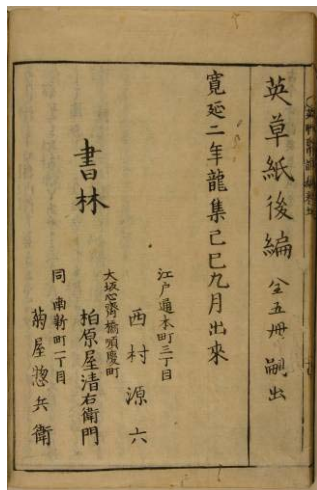 英草紙後編 全五冊 嗣出
寛延二年龍集己巳九月出來
江戸通本町三丁目
西村源六
書林
大坂心斎橋順慶町
柏原屋清右衛門
同 南新町一丁目
菊屋惣兵衛